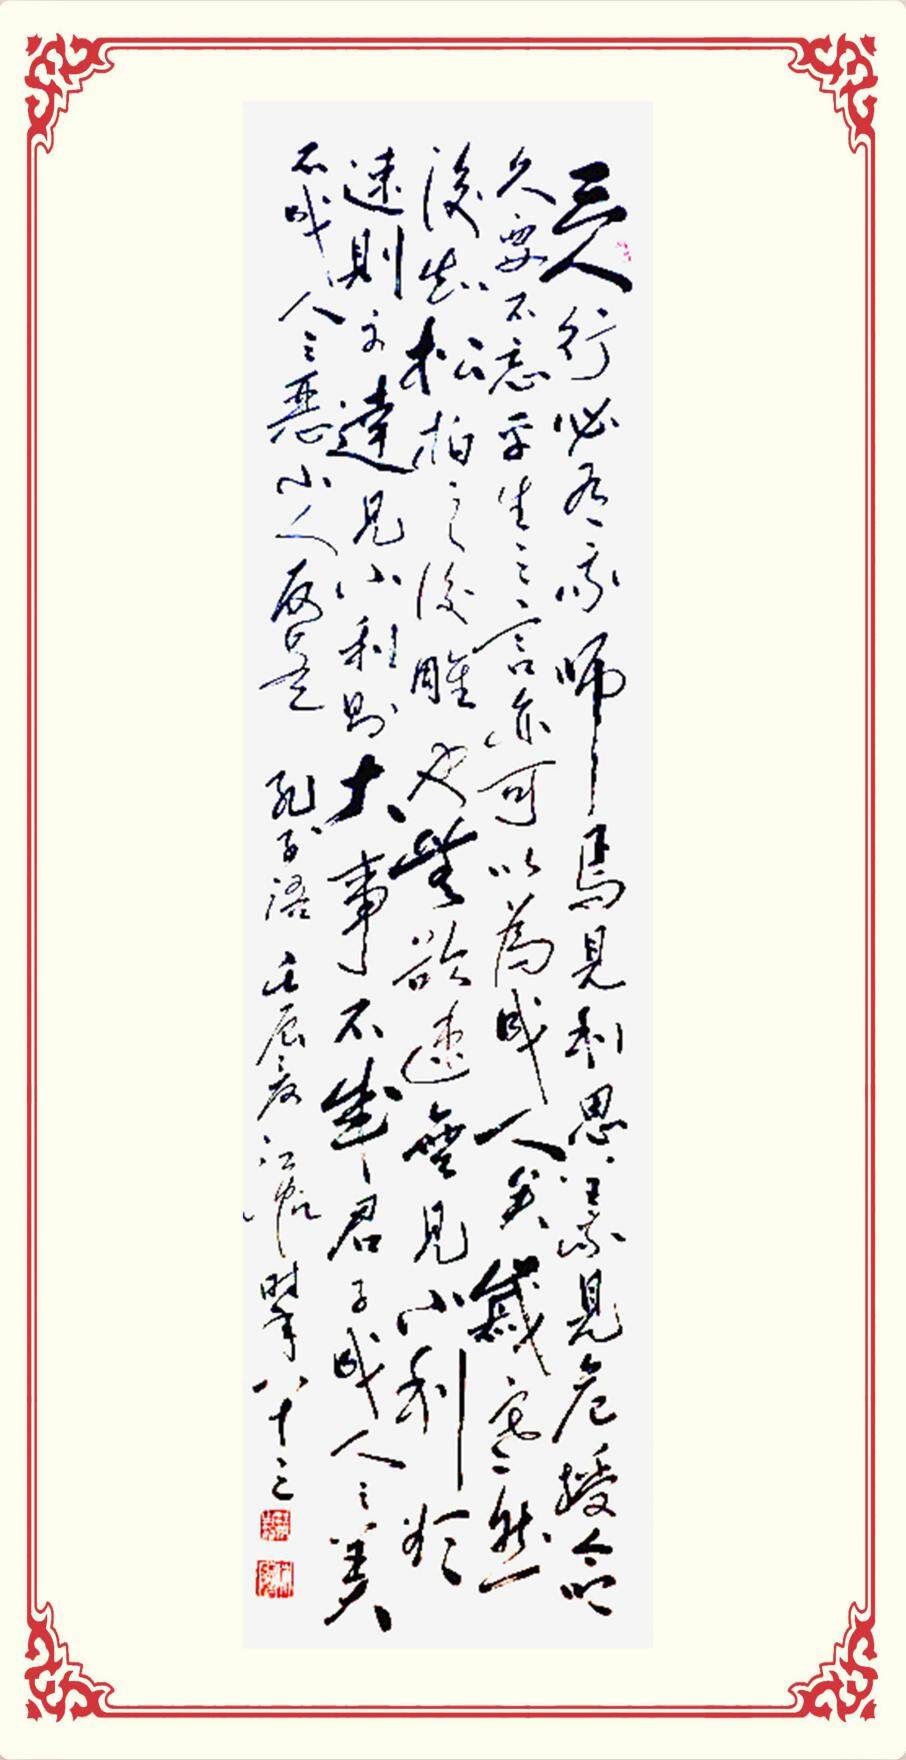 三人行必有我師焉見利思義見危授命
久要不忘平生之言亦可以為成人矣歲寒然
後知松柏之後雕也無欲速無見小利欲
速則不達見小利則大事不成君子成人之美
不成人之惡小人反是 孔子語 壬辰夏 時年八十三